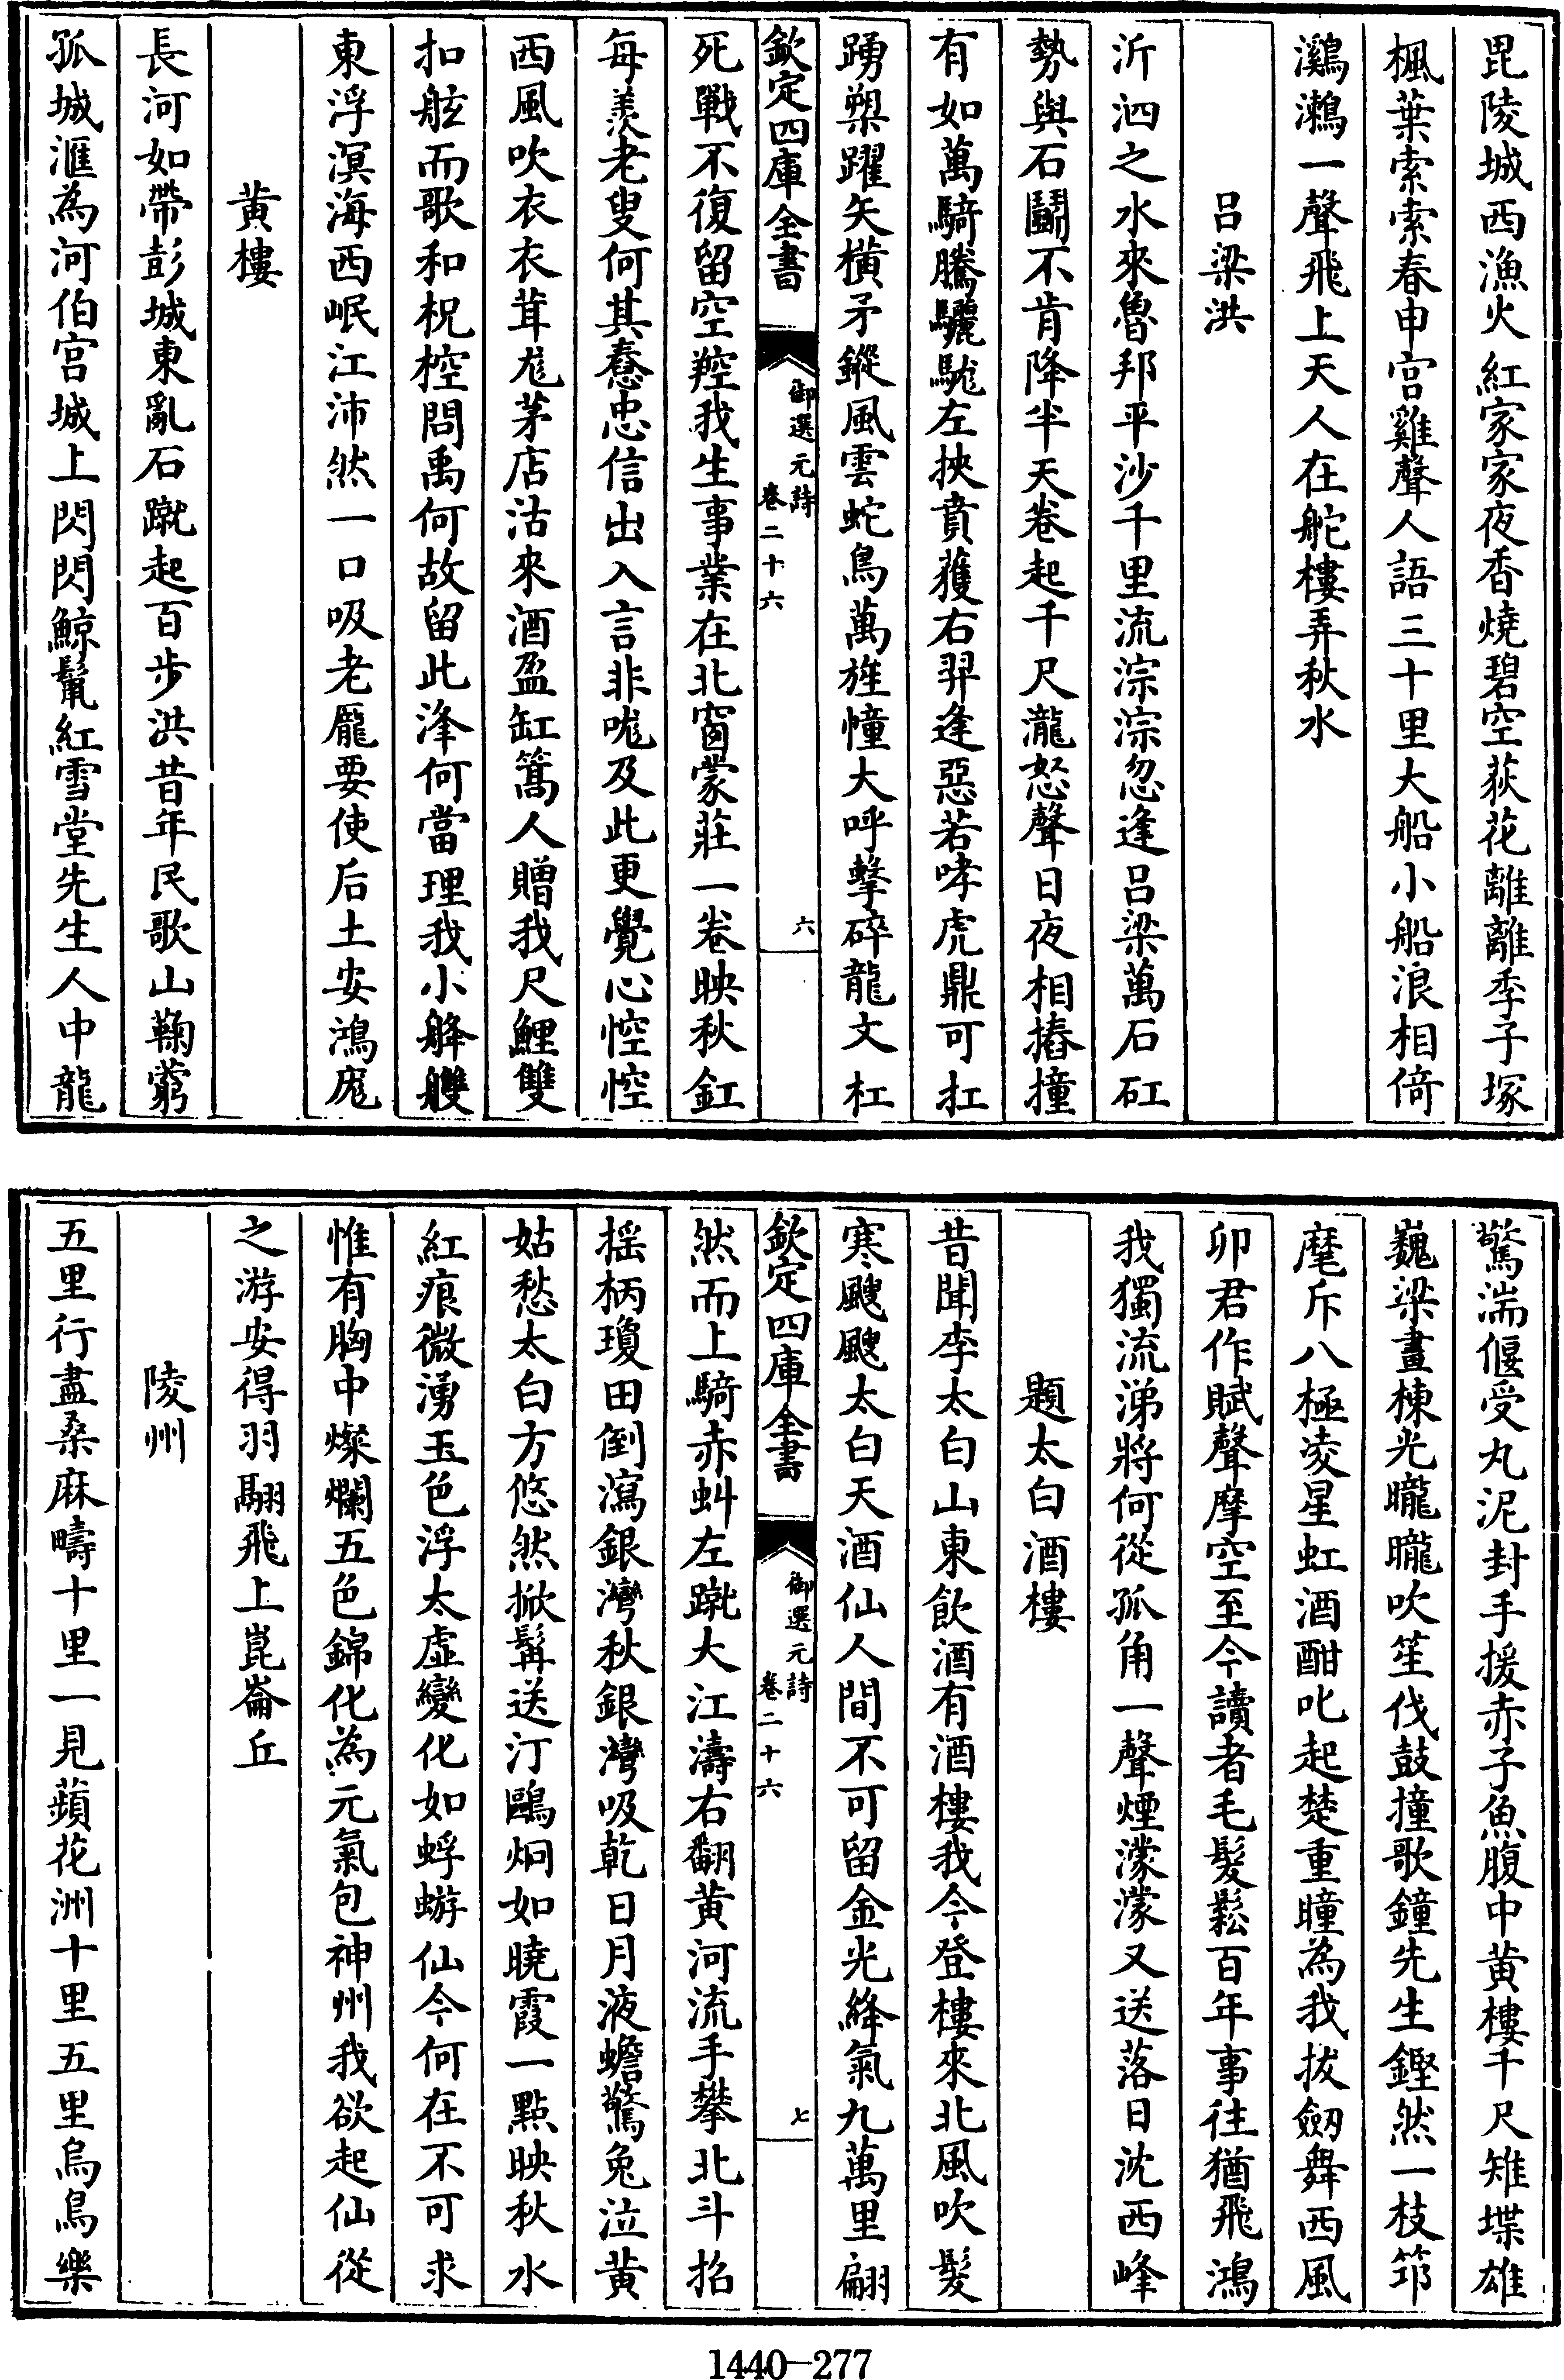 毘陵城西漁火紅家家夜香燒碧空荻花離離季子塚
楓葉索索春申宫雞聲人語三十里大船小船浪相倚
鸂鶒一聲飛上天人在舵樓弄秋水
吕梁洪
沂泗之水來魯邦平沙千里流淙淙忽逢吕梁萬石矼
勢與石鬭不肯降半天卷起千尺瀧怒聲日夜相摏撞
有如萬騎騰驪駹左挾賁獲右羿逄惡若哮虎鼎可扛
踴槊躍矢横矛鏦風雲蛇鳥萬旌幢大呼擊碎龍文杠
欽定四庫全書
御選元詩
卷二十六
六
死戰不復留空羫我生事業在北窗蒙莊一卷映秋釭
每羡老叟何其憃忠信出入言非哤及此更覺心悾悾
西風吹衣衣茸尨茅店沽來酒盈缸篙人贈我尺鯉雙
扣舷而歌和柷椌問禹何故留此洚何當理我小舽艭
東浮溟海西岷江沛然一口吸老龎要使后土安鴻厖
黄樓
長河如帶彭城東亂石蹴起百步洪昔年民歌山鞠藭
孤城滙為河伯宫城上閃閃鯨鬛紅雪堂先生人中龍
驚湍偃受丸泥封手援赤子魚腹中黄樓千尺雉堞雄
巍梁畫棟光曨曨吹笙伐鼓撞歌鐘先生鏗然一枝筇
麾斥八極凌星虹酒酣叱起楚重瞳為我拔劒舞西風
卯君作賦聲摩空至今讀者毛髮鬆百年事往猶飛鴻
我獨流涕將何從孤角一聲煙濛濛又送落日沈西峰
題太白酒樓
昔聞李太白山東飲酒有酒樓我今登樓來北風吹髮
寒颼颼太白天酒仙人間不可留金光絳氣九萬里翩
欽定四庫全書
御選元詩
卷二十六
七
然而上騎赤虬左蹴大江濤右翻黄河流手攀北斗招
摇柄瓊田倒瀉銀灣秋銀灣吸乾日月液蟾驚兔泣黄
姑愁太白方悠然掀髯送汀鷗炯如曉霞一點映秋水
紅痕微湧玉色浮太虚變化如蜉蝣仙今何在不可求
惟有胸中燦爛五色錦化為元氣包神州我欲起仙從
之游安得羽翮飛上崑崙丘
陵州
五里行盡桑麻疇十里一見蘋花洲十里五里烏鳥樂
1440—277